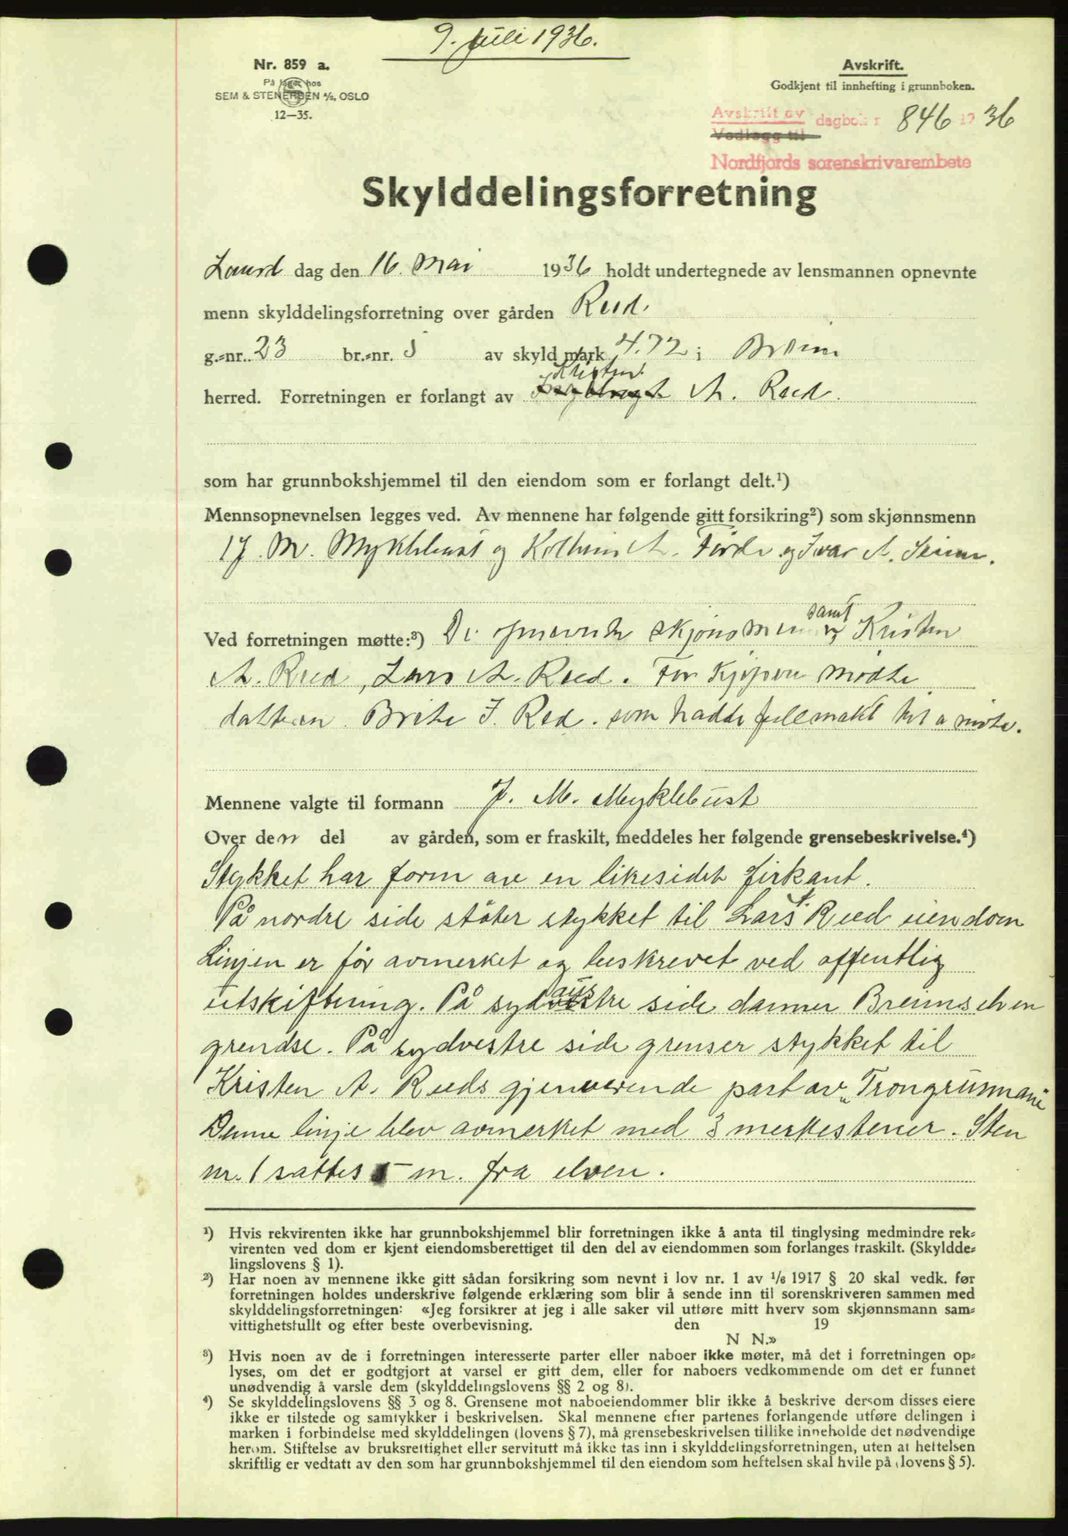 9. Juli 1936.
Nr. 859 a.
På lager hos
SEM & STENERSEN A/S, OSLO
12—35.
Avskrift.
Godkjent til innhefting i grunnboken.
Avskrift av dagbok nr 846 19 36
Vedlegg til
Nordfjords sorenskrivarembete
Skylddelingsforretning
Laurdag den 16. Mai 1936 holdt undertegnede av lensmannen opnevnte
menn skylddelingsforretning over gården Reed.
g.-nr. 23 br.-nr. 5 av skyld mark 4.72 i Breim
Kristen
herred. Forretningen er forlangt av A. Reed.
som har grunnbokshjemmel til den eiendom som er forlangt delt.¹)
Mennsopnevnelsen legges ved. Av mennene har følgende gitt forsikring²) som skjønnsmenn
J. M. Myklebust og A. Førde og Ivar A. Seime.
Ved forretningen møtte:³) De opnevnte skjønsmenn samt Kristen
A. Reed, Lars A. Reed. For Kjøperen mødte
datteren Brite J. Reed. som hadde fullmakt til å møte.
Mennene valgte til formann J. M. Myklebust
Over den del av gården, som er fraskilt, meddeles her følgende grensebeskrivelse.⁴)
Stykket har form av en likesidet firkant.
På nordre side støter stykket til Lars A. Reed eiendom
Linjen er før avmerket og beskrevet ved offentlig
utskiftning. På sydaustre side danner Breimselven
grendse. På sydvestre side grenser stykket til
Kristen A. Reeds gjenverende part av "Trongrunnane
Denne linje blev avmerket med 3 merkestener. Sten
nr. 1 sattes 5 m. fra elven.
¹) Hvis rekvirenten ikke har grunnbokshjemmel blir forretningen ikke å anta til tinglysing medmindre rek-
virenten ved dom er kjent eiendomsberettiget til den del av eiendommen som forlanges fraskilt. (Skyldde-
lingslovens § 1).
²) Har noen av mennene ikke gitt sådan forsikring som nevnt i lov nr. 1 av 1/6 1917 § 20 skal vedk. før
forretningen holdes underskrive følgende erklæring som blir å sende inn til sorenskriveren sammen med
skylddelingsforretningen: «Jeg forsikrer at jeg i alle saker vil utføre mitt hverv som skjønnsmann sam-
vittighetsfullt og efter beste overbevisning. den 19
N N.»
³) Hvis noen av de i forretningen interesserte parter eller naboer ikke møter, må det i forretningen op-
lyses, om det er godtgjort at varsel er gitt dem, eller for naboers vedkommende om det er funnet
unødvendig å varsle dem (skylddelingslovens §§ 2 og 8).
⁴) Se skylddelingslovens §§ 3 og 8. Grensene mot naboeiendommer blir ikke å beskrive dersom disses eiere
ikke er tilstede og samtykker i beskrivelsen. Skal mennene efter partenes forlangende utføre delingen i
marken i forbindelse med skylddelingen (lovens § 7), må grensebeskrivelsen tillike inneholde det nødvendige
herom. Stiftelse av bruksrettighet eller servitutt må ikke tas inn i skylddelingsforretningen, uten at heftelsen
skriftlig er vedtatt av den som har grunnbokshjemmel til den eiendom som heftelsen skal hvile på (lovens § 5).